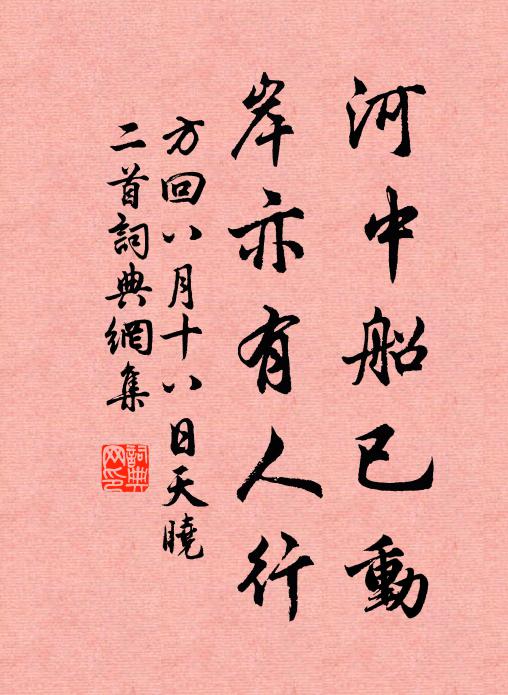 河中船已動
岸亦有人行
方回八月十八日天曉
二首詞典網集
詞典網印